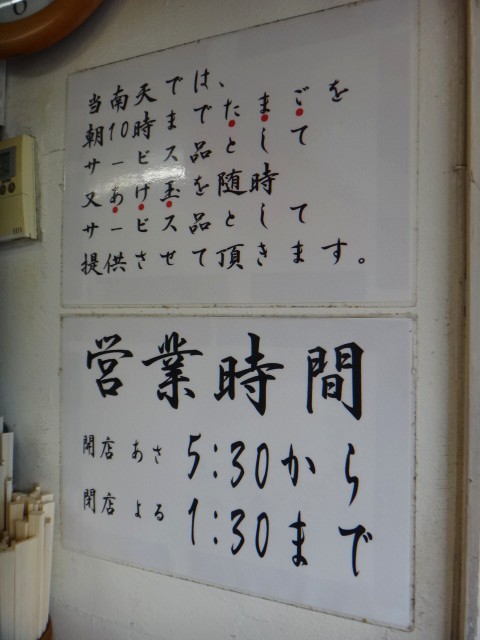 当南天では、
朝10時までたまごを
サービス品として
又あげ玉を随時
サービス品として
提供させて頂きます。
営業時間
開店 あさ 5:30から
閉店 よる 1:30まで